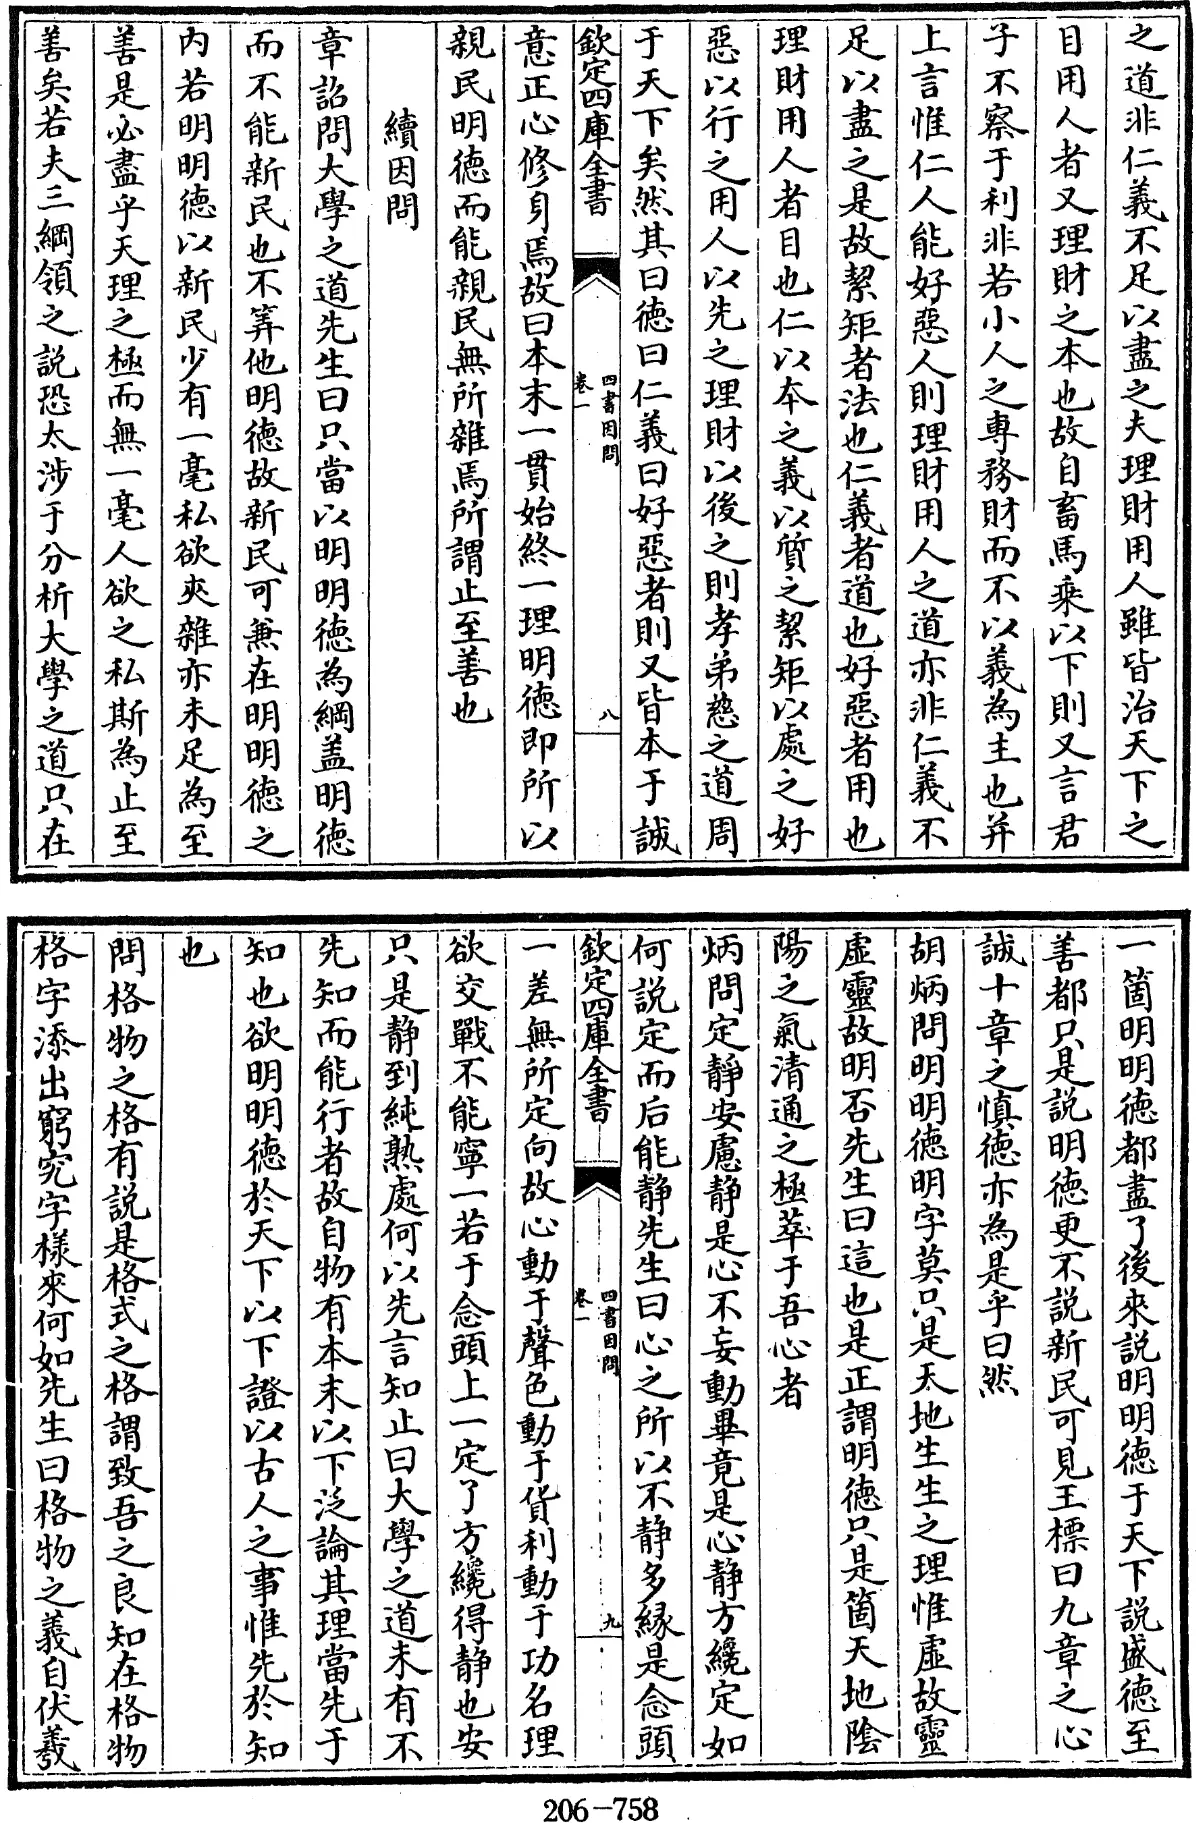 之道非仁義不足以盡之夫理財用人雖皆治天下之
目用人者又理財之本也故自畜馬乗以下則又言君
子不察于利非若小人之専務財而不以義為主也并
上言惟仁人能好惡人則理財用人之道亦非仁義不
足以盡之是故絜矩者法也仁義者道也好惡者用也
理財用人者目也仁以本之義以質之絜矩以處之好
惡以行之用人以先之理財以後之則孝弟慈之道周
于天下矣然其曰德曰仁義曰好惡者則又皆本于誠
欽定四庫全書
四書因問
卷一
八
意正心修身焉故曰本末一貫始終一理明德即所以
親民明德而能親民無所雜焉所謂止至善也
續因問
章詔問大學之道先生曰只當以明明德為綱盖明德
而不能新民也不筭他明德故新民可兼在明明德之
内若明明德以新民少有一毫私欲夾雜亦未足為至
善是必盡乎天理之極而無一毫人欲之私斯為止至
善矣若夫三綱領之說恐太涉于分析大學之道只在
一箇明明德都盡了後來說明明德于天下說盛德至
善都只是說明德更不說新民可見王標曰九章之心
誠十章之慎德亦為是乎曰然
胡炳問明明德明字莫只是天地生生之理惟虛故靈
虛靈故明否先生曰這也是正謂明德只是箇天地隂
陽之氣清通之極萃于吾心者
炳問定靜安慮静是心不妄動畢竟是心静方纔定如
何說定而后能静先生曰心之所以不静多縁是念頭
欽定四庫全書
四書因問
卷一
九
一差無所定向故心動于聲色動于貨利動于功名理
欲交戰不能寧一若于念頭上一定了方纔得静也安
只是静到純熟處何以先言知止曰大學之道未有不
先知而能行者故自物有本末以下泛論其理當先于
知也欲明明德於天下以下證以古人之事惟先於知
也
問格物之格有說是格式之格謂致吾之良知在格物
格字添出窮究字樣來何如先生曰格物之義自伏羲
206-758